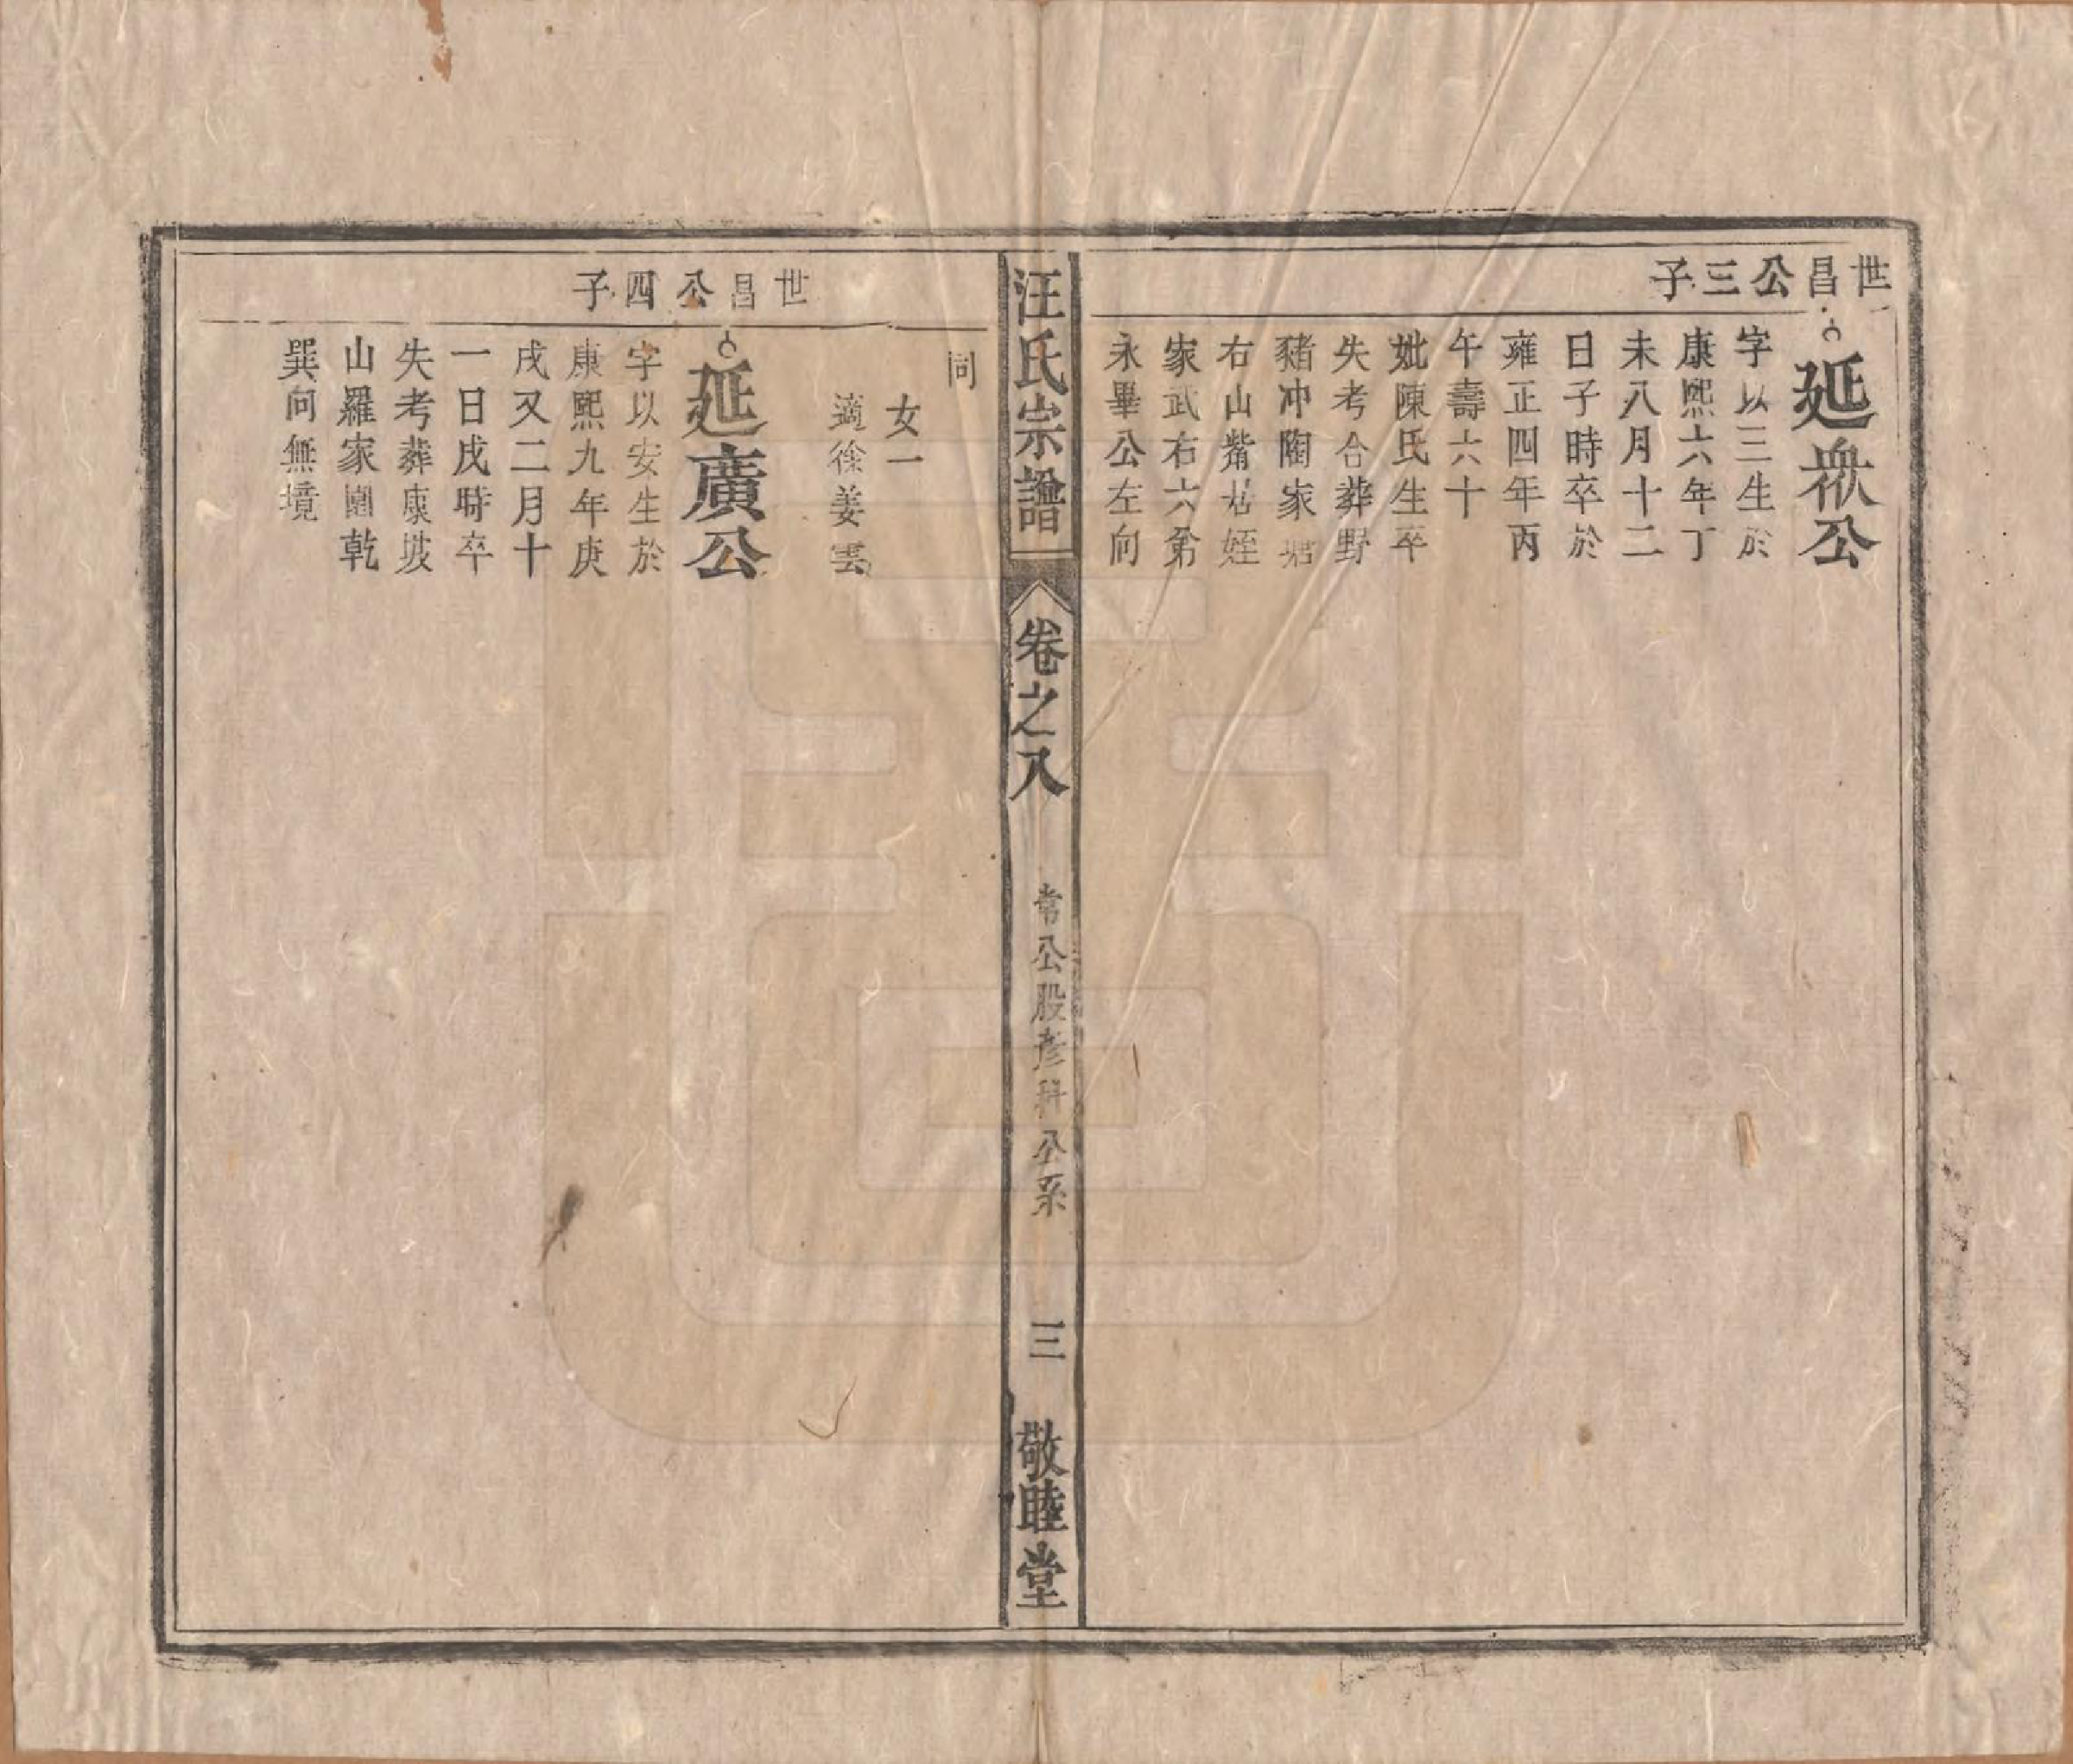 世昌公三子
延衆公
字以三生於
康熙六年丁
未八月十二
日子時卒於
雍正四年丙
午壽六十
妣陳氏生卒
失考合葬野
豬冲陶家塘
右山觜居姪
家武右六弟
永畢公左向
汪氏宗譜
卷之八
常公股彥科公系
三
敬睦堂
同
女一
適徐姜雲
世昌公四子
延廣公
字以安生於
康熙九年庚
戌又二月十
一日戌時卒
失考葬康坂
山羅家園乾
巽向無境